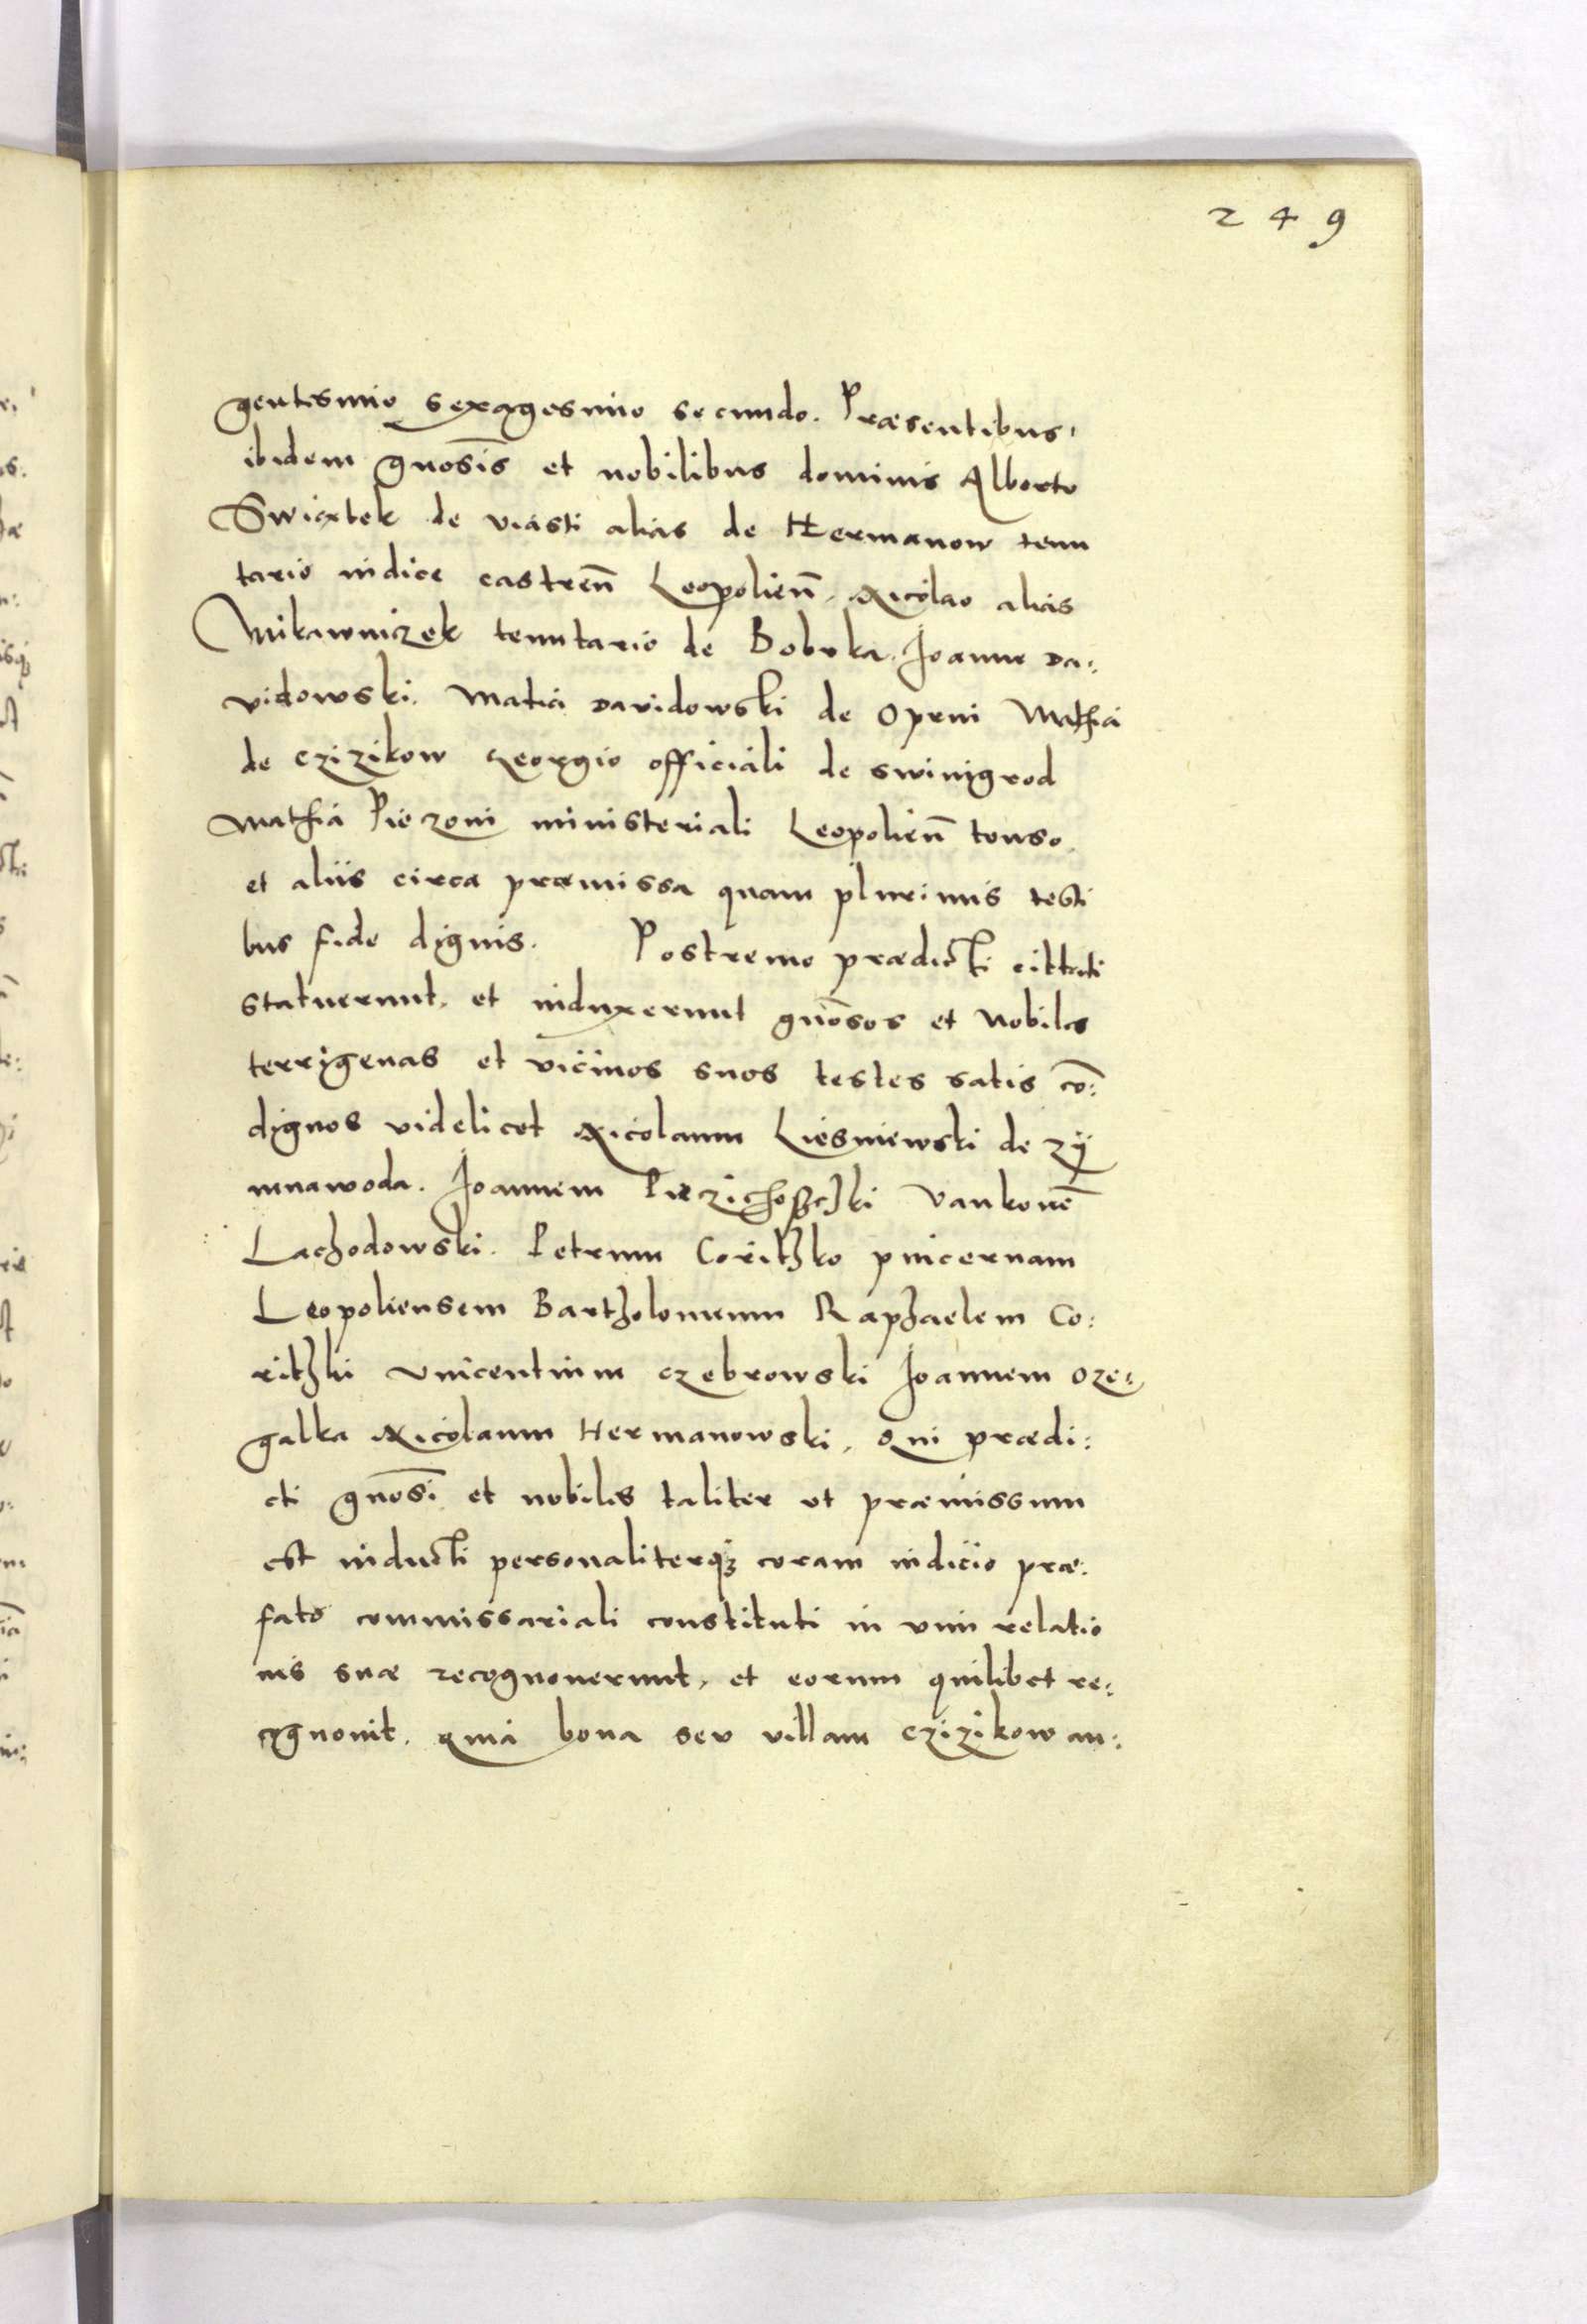 249
gentesimo sexagesimo secundo. Præsentibus
ibidem gnosis et nobilibus dominis Alberto
Swiextek de viasti alias de Hermanow tenu
tario iudice castren Leopolien, Nicolao alias
Mikawniczek tenutario de Bobrka, Joanne Da:
vidowski. Matia Davidowski de Openi Mathia
de Czizikow Georgio officiali de Swinigrod
Mathia Piezoni ministeriali Leopolien touso
et aliis circa præmissa quam plurimis testi
bus fide dignis. Postremo prædicti cittati
statuerunt, et induxerunt gnosos et Nobiles
terrigenas et vicinos suos testes satis co:
dignos videlicet Nicolaum Liesniewski de Zÿ
mnawoda. Joannem Vankone
Lachodowski. Petrum Corithko pincernam
Leopoliensem Bartholomeum Raphaelem Co:
rithki Vincentium Czebrowski Joannem Oze:
galka Nicolaum Hermanowski, Qui prædi:
cti gnosi et nobiles taliter ut præmissum
est inducti personaliterqȝ coram iudicio præ:
fato commissariali constituti in vim relatio
nis suæ recognoverunt, et eorum quilibet re:
cognovit, quia bona seu villam Czizikow an: